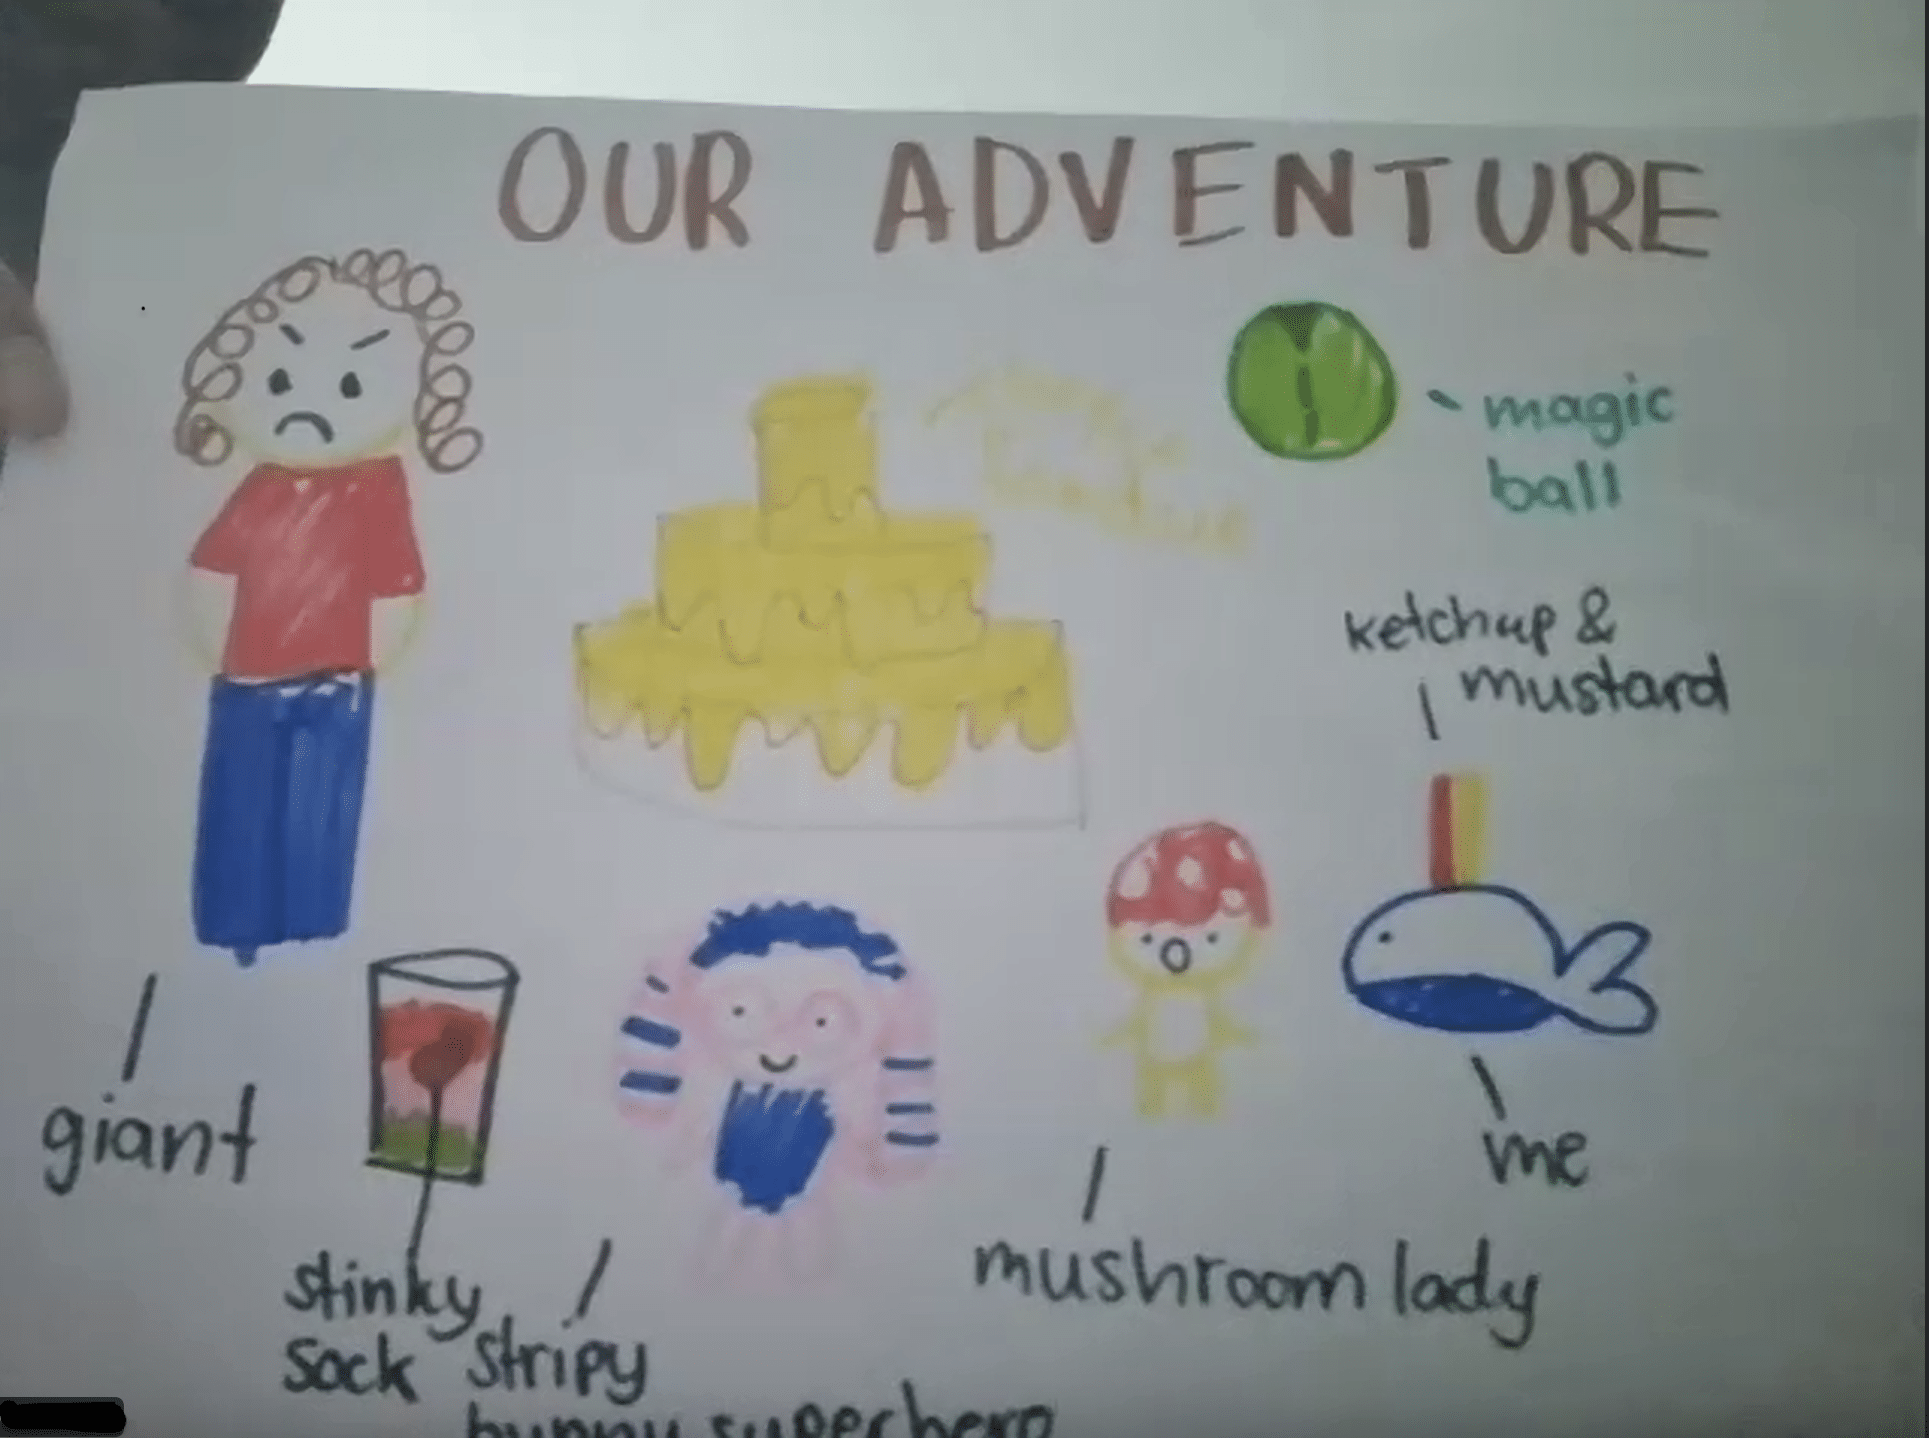 OUR ADVENTURE
magic
ball
ketchup &
mustard
me
giant
mushroom lady
stinky
sock
stripy
bunny superhero